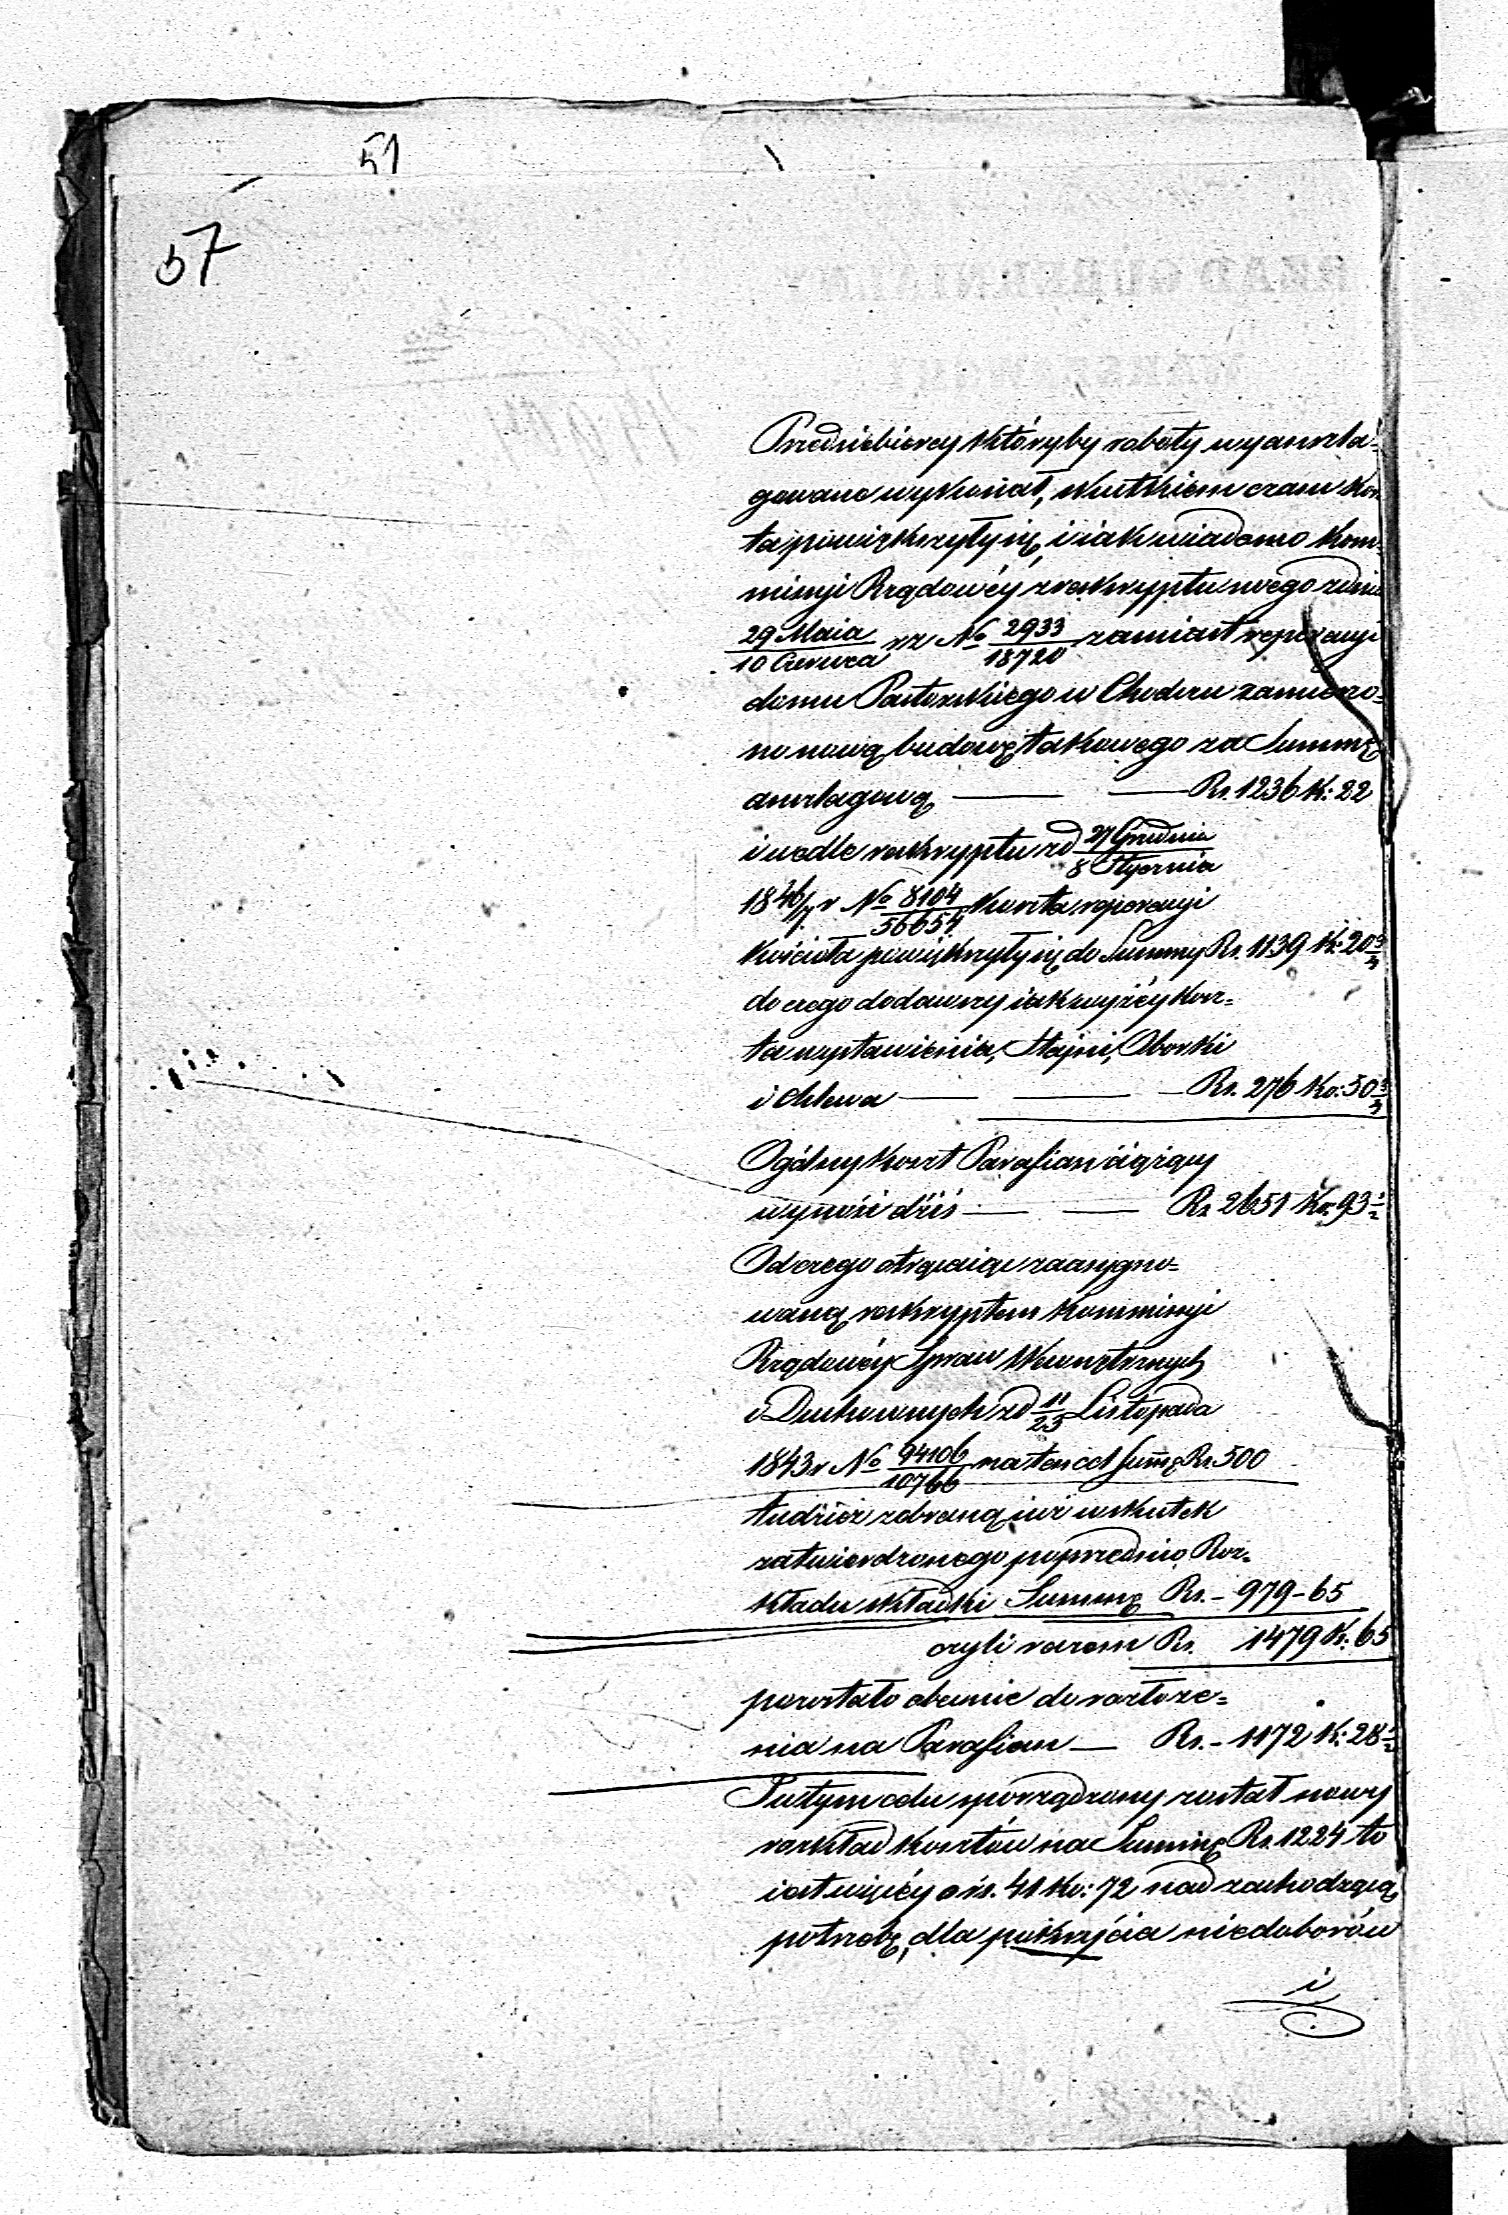 51
57
Przedsiebiercy któryby roboty wyanszla-
gowane wykonał, skutkiem czasu kosz
ta powiększyły się, i iak wiadomo Kom-
missyi Rządowéy z reskryptu swego z dnia
29 Maia/10 Czerwca r z No 2933/18720 zamiast reperacyi
domu Pastorskiego w Chodczu zamierzo-
no nową budowę takowego za Summę
anszlagową — — Rs. 1236 K: 22
i wedle reskryptu z d 27 Grudnia/8 Stycznia
1846/7 r No 8104/56654 koszta reperacyi
Kościoła powiększyły się do Summy Rs. 1139 K: 20 3/4
do czego dodawszy iak wyżéy kosz-
ta wystawienia, Stajni, Oborki
i chlewa — — — Rs. 276 Ko: 50 3/4
Ogólny koszt Parafian ciążący
wynosi dziś — — Rs 2651 Ko: 93 1/2
Od czego otrąciaiąc zaasygno-
waną reskryptem Kommissyi
Rządowéy Spraw Wewnętrznych
i Duchownych z d 11/23 Listopada
1843 r No 94106/10766 na ten cel Summę Rs. 500
tudzież zebraną iuż wskutek
zatwierdzonego poprzednio Roz-
kładu składki Summę Rs. - 979 - 65
czyli razem Rs. 1479 K: 65
pozostało obecnie do rozłoże-
nia na Parafian — Rs. - 1172 K: 28 1/2
W tym celu sporządzony został nowy
rozkład kosztów na Summę Rs. 1224 to
iest więcéy o rs. 41 Ko: 72 nad zachodzącą
potrzebę, dla pokrycia niedoborów
i